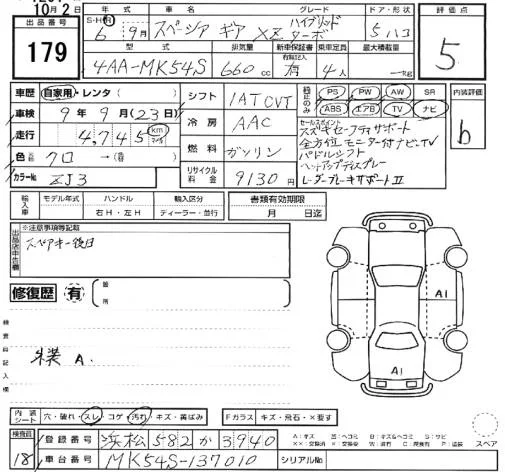 10月2日
出品番号
179
年式 車名 グレード ドア・形状 評価点
S・H・R 6年 9月 スペーシア ギア XZ ハイブリッドターボ 5ハコ
5
型式 排気量 新車保証書 乗車定員 最大積載量
4AA-MK54S 660cc 有 4人 kg
車歴 自家用・レンタ( )
車検 9年9月(23日)
走行 4,745 km マイル
色 クロ →( )
カラーNo. ZJ3
シフト IAT CVT
冷房 AAC
燃料 ガソリン
リサイクル料金 9130円
純正のみ PS PW AW SR
ABS エアB TV ナビ
内装評価
b
セールスポイント
スズキセーフティサポート
全方位モニター付ナビ、TV
パドルシフト
ヘッドアップディスプレー
レーダーブレーキサポートⅡ
輸入車 モデル年式 ハンドル 輸入区分 書類有効期限
右H・左H ディーラー・並行 月 日迄
出品店申告欄
※注意事項等記載
スペアキー後日
修復歴 有 箇所
検査員記入欄
A1
A1
A.
内装シート 穴・破れ・スレ・コゲ・汚れ・キズ・黄ばみ Fガラス キズ・飛石・×要す
スペア
検査員
18
登録番号 浜松 582 か 3940
車台番号 MK54S-137010 シリアルNo.
A：キズ U：ヘコミ B：キズ&ヘコミ S：サビ